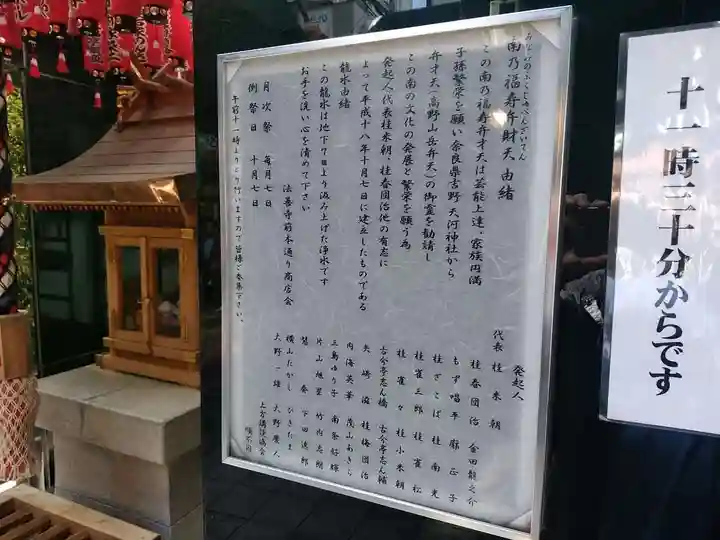 十一時三十分からです
みなみのふくじゅべんざいてん
南乃福寿弁財天 由緒
この南乃福寿弁才天は芸能上達・家族円満
子孫繁栄を願い奈良県吉野 天河神社から
弁才天(高野山岳弁天)の御霊を勧請し
この南の文化の発展と繁栄を願う為
発起人代表桂米朝、桂春団治他の有志に
よって平成十八年十月七日に建立したものである
龍水由緒
この龍水は地下78mより汲み上げた浄水です
お手を洗い心を清めて下さい
法善寺前本通り商店会
月次祭 毎月七日
例祭日 十月七日
午前十一時よりとり行いますので皆様ご参集下さい。
発起人
代表 桂 米朝
桂 春団治 金田龍之介
もず唱平 麻 正子
桂 ざこば 桂 南光
桂 雀三郎 桂 雀松
桂 雀々 桂 小米朝
古今亭志ん橋 古今亭志ん輔
矢崎 滋 桂 梅団治
内海英華 茂山あきら
三島ゆり子 南条好輝
片山旭星 竹内志朗
下田逸郎
横山たかし ひろし
大野一雄 大野慶人
上方講談協会
順不同